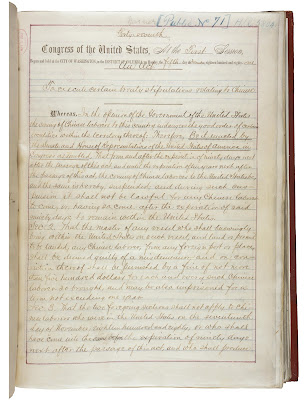 [Public No 71]
Forty-Seventh
Congress of the United States, At the First Session,
Begun and held at the CITY OF WASHINGTON, in the DISTRICT OF COLUMBIA, on Monday, the fifth day of December, eighteen hundred and eighty-one.
An Act
To execute certain treaty stipulations relating to Chinese.
Whereas, In the opinion of the Government of the United States
the coming of Chinese laborers to this country endangers the good order of certain
localities within the territory thereof: Therefore, Be it enacted by
the Senate and House of Representatives of the United States of America in
Congress assembled, That from and after the expiration of ninety days next
after the passage of this act, and until the expiration of ten years next after
the passage of this act, the coming of Chinese laborers to the United States be,
and the same is hereby, suspended; and during such sus-
pension it shall not be lawful for any Chinese laborer
to come, or, having so come after the expiration of said
ninety days, to remain within the United States.
Sec. 2. That the master of any vessel who shall knowingly
bring within the United States on such vessel, and land or permit
to be landed, any Chinese laborer, from any foreign port or place,
shall be deemed guilty of a misdemeanor, and on con-
viction thereof shall be punished by a fine of not more
than five hundred dollars for each and every such Chinese
laborer so brought, and may be also imprisoned for a
term not exceeding one year.
Sec. 3. That the two foregoing sections shall not apply to Chi-
nese laborers who were in the United States on the seventeenth
day of November, eighteen hundred and eighty, or who shall
have come into the same before the expiration of ninety days
next after the passage of this act, and who shall produce